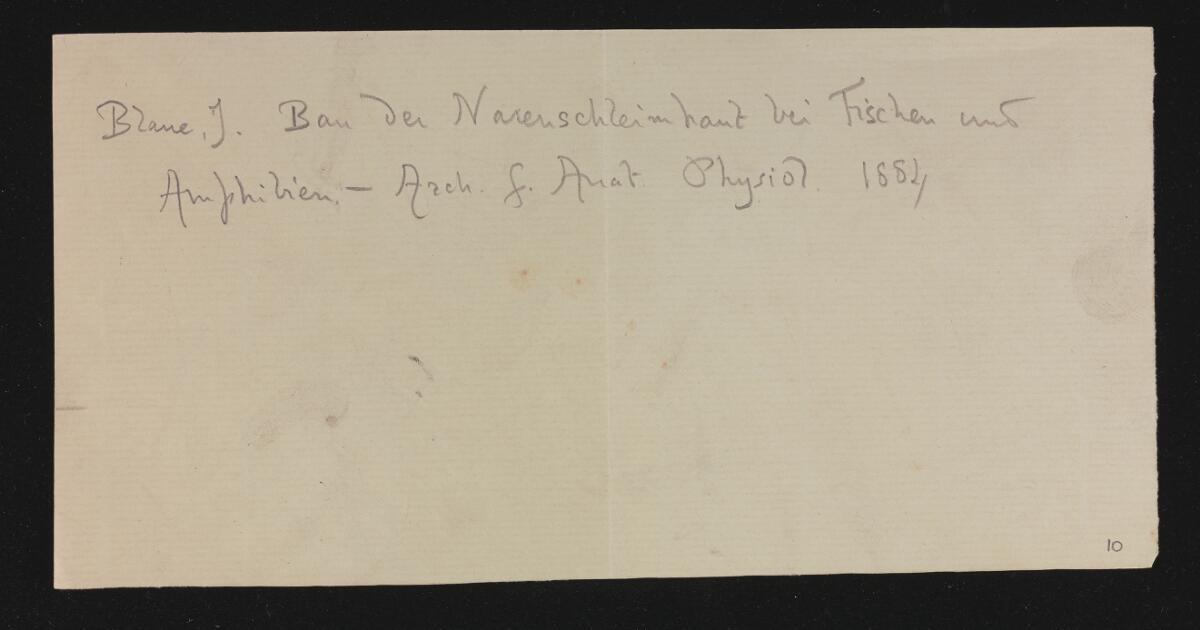 Blaue, J. Bau der Nasenschleimhaut bei Fischen und
Amphibien. — Arch. f. Anat. Physiol. 1884
10